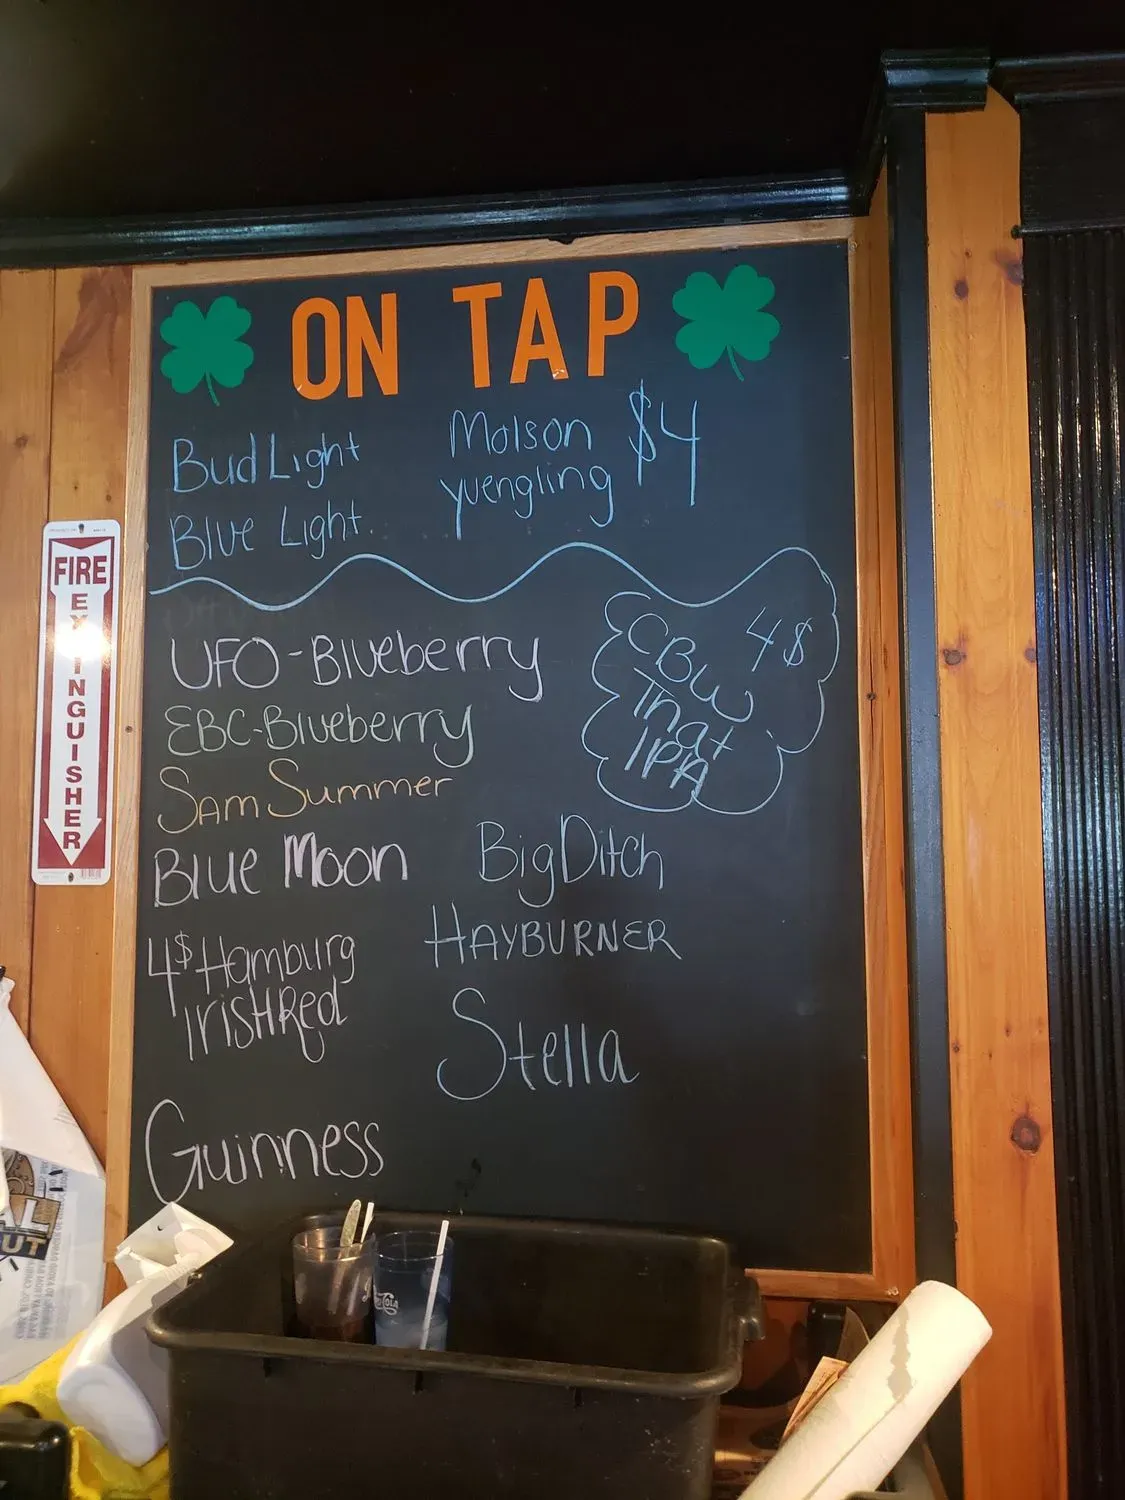 ON TAP
Bud Light
Blue Light
Molson
yuengling
$4
UFO-Blueberry
EBC-Blueberry
Sam Summer
Blue Moon
4$ Hamburg
Irish Red
Guinness
CBW
That
IPA
4$
Big Ditch
HAYBURNER
Stella
FIRE
EXTINGUISHER